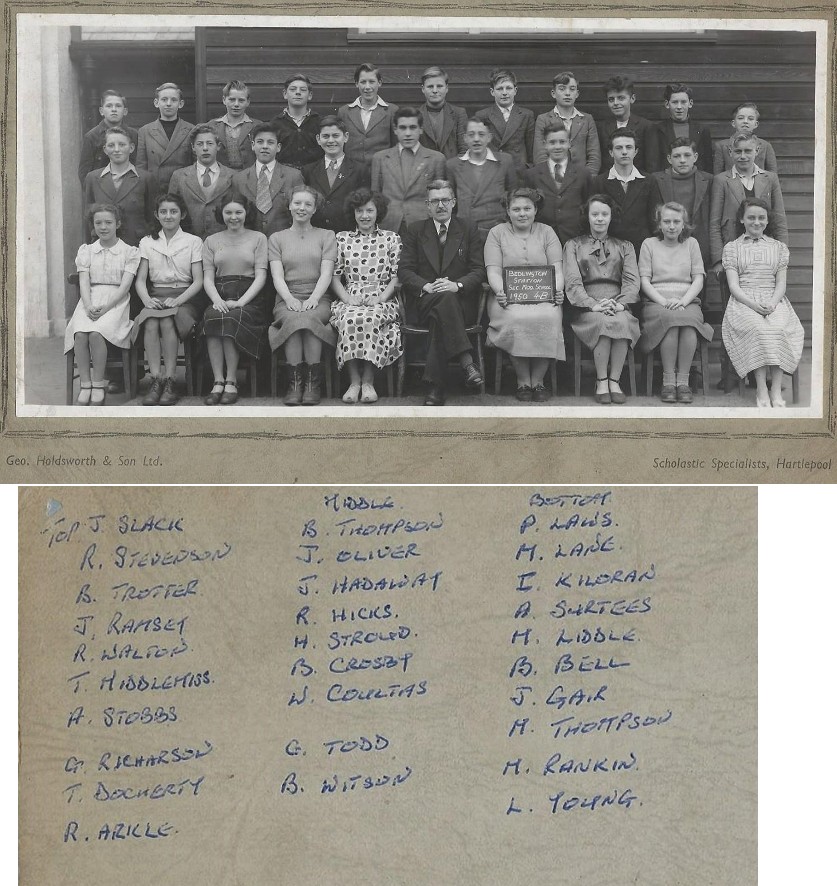 BEDLINGTON
STATION
SEC MOD SCHOOL
1950 4B
Geo. Holdsworth & Son Ltd.
Scholastic Specialists, Hartlepool
TOP J. SLACK
R. STEVENSON
B. TROTTER.
J. RAMSEY
R. WALTON.
T. MIDDLEMISS.
A. STOBBS
G. RICHARSON
T. DOCHERTY
R. ARKLE.
MIDDLE.
B. THOMPSON
J. OLIVER
J. HADAWAY
R. HICKS.
H. STROUD.
B. CROSBY
W. COULTAS
G. TODD
B. WITSON
BOTTOM.
P. LAWS.
M. LANE.
I. KILGRAN
A. SURTEES
M. LIDDLE.
B. BELL
J. GAIR
M. THOMPSON
M. RANKIN.
L. YOUNG.